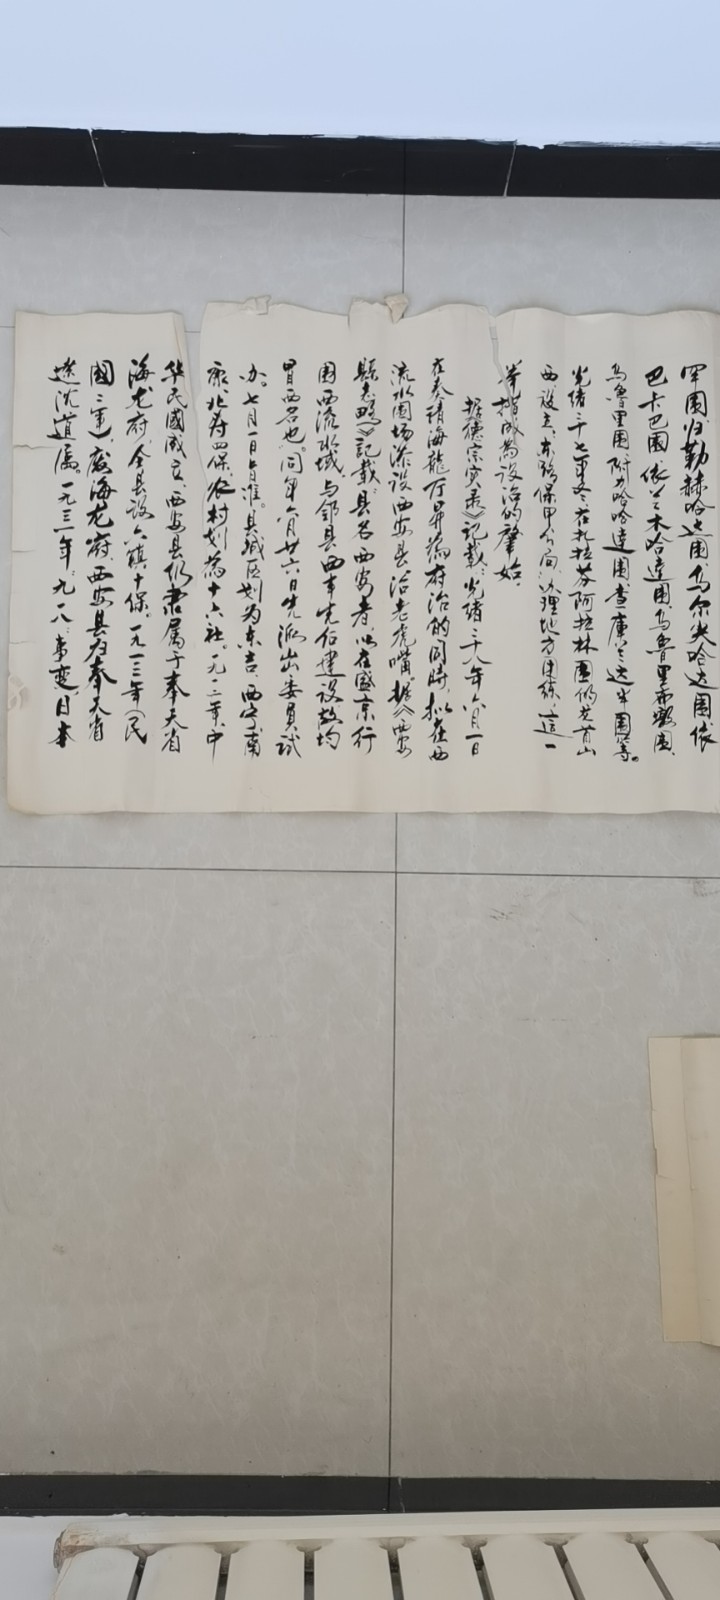 罕围归勒赫哈达围乌尔尖哈达围依
巴卡巴围依兰木哈達围乌鲁里希鄂围
乌鲁里围附力哈哈達围查庫兰达半围等。
光绪三十七年冬在扎拉芬阿拉林围的老首山
西設立东路保甲公局,办理地方团练,這一
举措成為設治的肇始.
据德宗实录》記載,光绪二八年六月一日
在奏请海龍厅昇為府治的同時,拟在西
流水围场添设西安县,治老虎嘴.据《西安
縣志略》記載,县名西安者,以在盛京行
围西流水域,与邻县西丰先后建设故均
冒西名也.同年六月廿六日先派出委員试
办。七月一日旨准。县城区划为东吉、西宁、南
康、北寿四保,农村划為十六社。一九一二年,中
华民國成立,西安县仍隶属于奉天省
海龙府,全县设六镇十保。一九一三年(民
國二年),废海龙府,西安县归奉天省
遼沈道属。一九三一年,九一八事变,日本